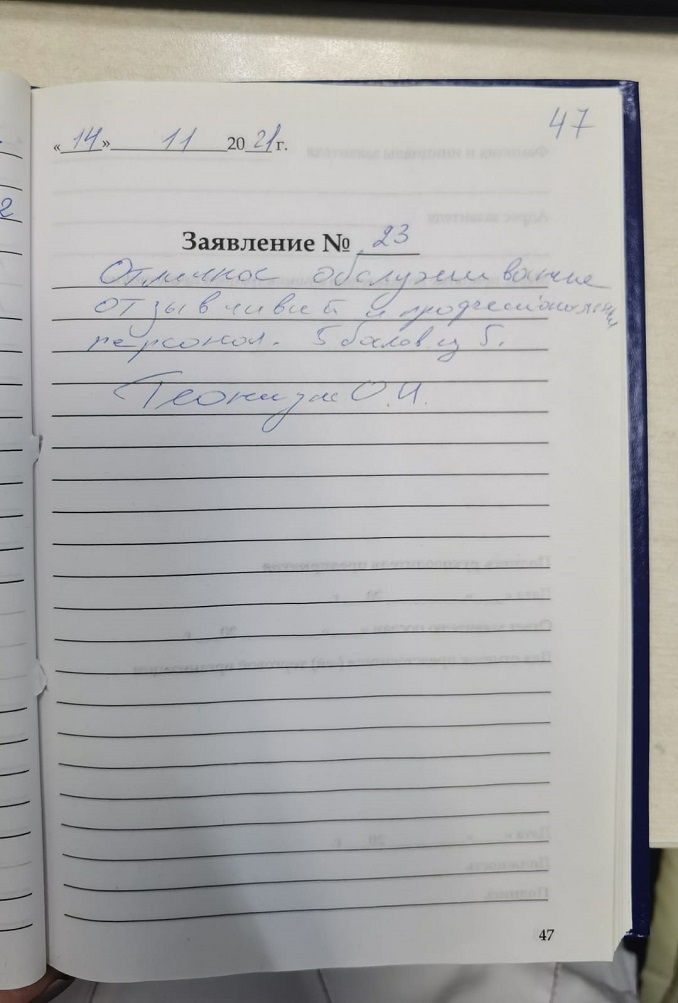 47
« 14 » 11 20 21 г.
Заявление № 23
Отличное обслуживание
отзывчивый и профессиональный
персонал. 5 балов из 5.
О.И.
47